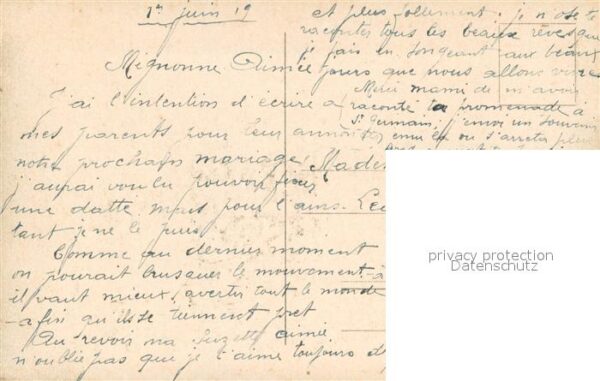 1er juin 19
Mignonne Aimée
J'ai l'intention d'écrire à
mes parents pour leur annoncer
notre prochain mariage.
j'aurai voulu pouvoir fixer
une datte mais pour l'ins-
tant je ne le puis
Comme au dernier moment
on pourait brusquer le mouvement
il vaut mieux avertir tout le monde
afin qu'ils se tiennent pret
Au revoir ma Suzette aimée
n'oublie pas que je t'aime toujours
et plus follement. je n'ose te
raconter tous les beaux rêves que
je fais en songeant aux beaux
jours que nous allons vivre
Merci mami de m'avoir
raconté ta promenade à
St Germain. j'envi un souvenir
ou s'arreter plus
Made
Leu
privacy protection
Datenschutz